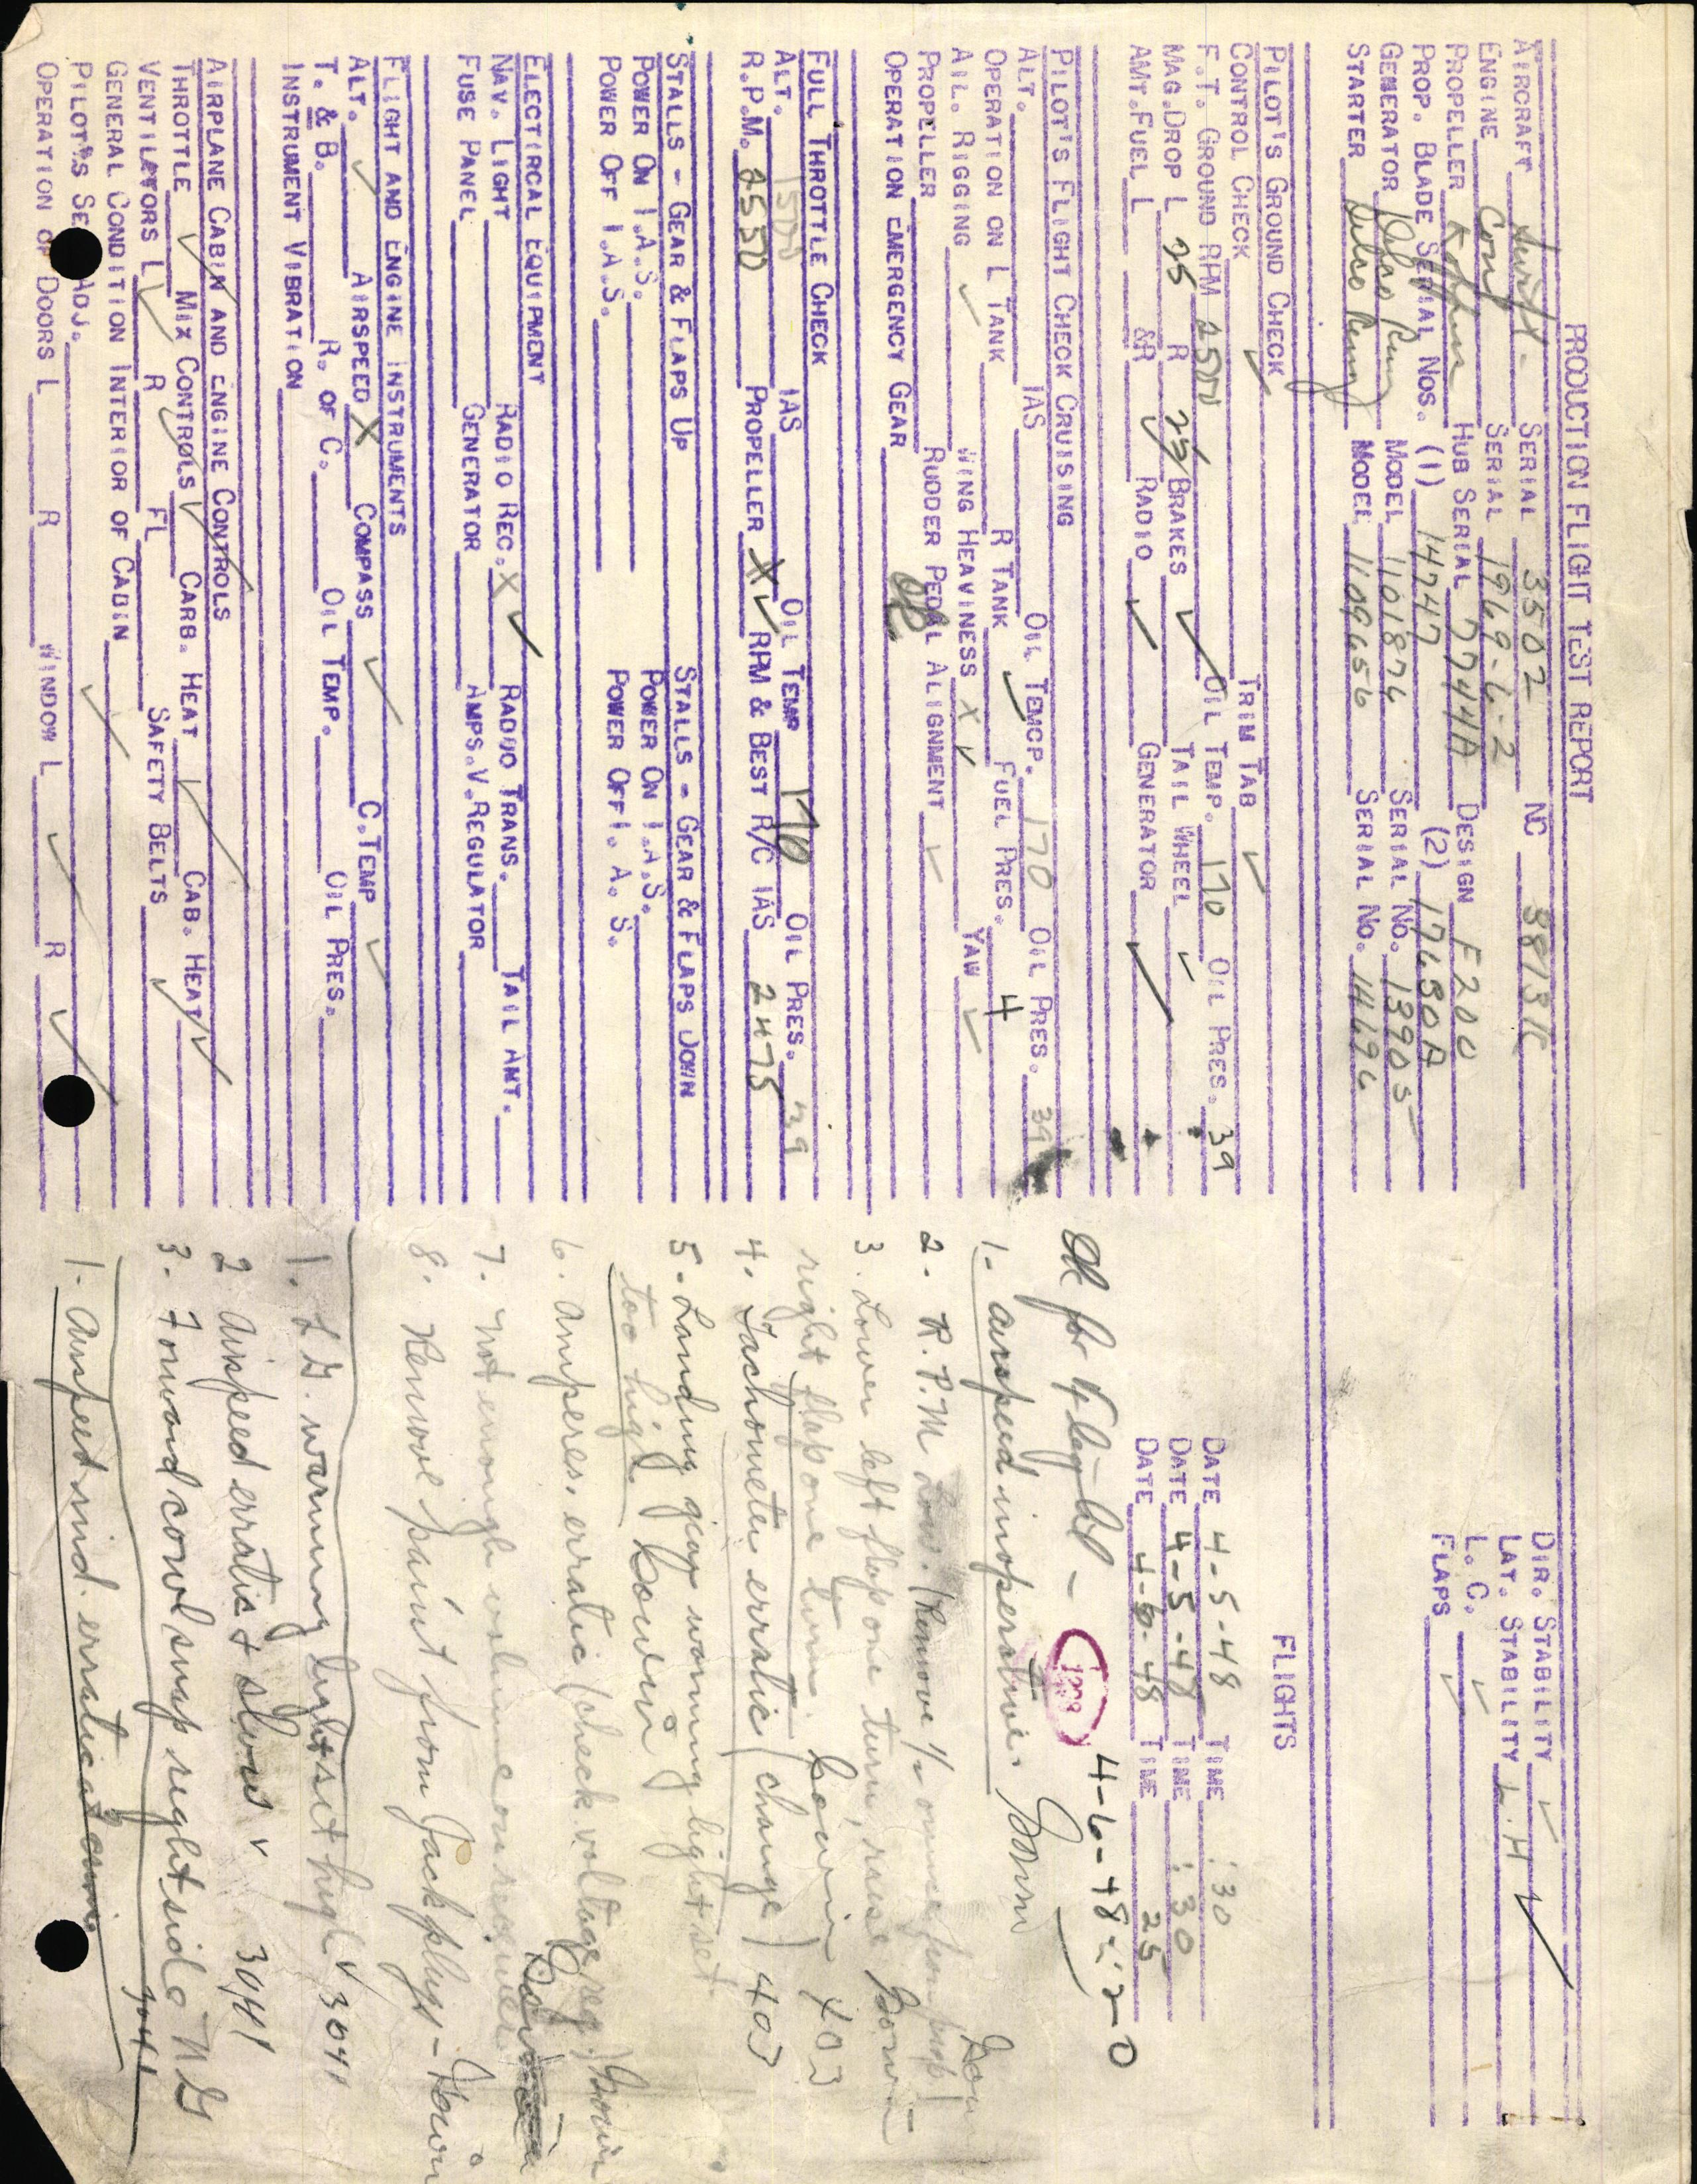 PRODUCTION FLIGHT TEST REPORT
AIRCRAFT Swift - SERIAL 3502 NC
ENGINE Cont SERIAL 1969-6-2
PROPELLER Koppers HUB SERIAL 7744A DESIGN F200
PROP. BLADE SERIAL NOS. (1) 14747 (2) 17630A
GENERATOR Delco Remy MODEL 1101876 SERIAL NO. 13905
STARTER Delco Remy MODEL 1109656 SERIAL NO. 14696
DIR. STABILITY ✓
LAT. STABILITY L.H ✓
L. C. ✓
FLAPS ✓
PILOT'S GROUND CHECK
CONTROL CHECK ✓ TRIM TAB ✓
F.T. GROUND RPM 2500 OIL TEMP. 170 OIL PRES. 39
MAG.DROP L 25 R 25 BRAKES ✓ TAIL WHEEL ✓
AMT.FUEL L &R ✓ RADIO ✓ GENERATOR ✓
PILOT'S FLIGHT CHECK CRUISING
ALT. IAS OIL TEMCP. 170 OIL PRES. 39
OPERATION ON L TANK R TANK ✓ FUEL PRES. 4
AIL. RIGGING ✓ WING HEAVINESS X ✓ YAW ✓
PROPELLER RUDDER PEDAL ALIGNMENT ✓
OPERATION EMERGENCY GEAR OK
FULL THROTTLE CHECK
ALT. 1500 IAS OIL TEMP 170 OIL PRES. 39
R.P.M. 2550 PROPELLER X ✓ RPM & BEST R/C IAS 2475
STALLS - GEAR & FLAPS UP STALLS - GEAR & FLAPS DOWN
POWER ON I.A.S. POWER ON I.A.S.
POWER OFF I.A.S. POWER OFF I. A. S.
ELECTIRCAL EQUIPMENT
NAV. LIGHT RADIO REC. X ✓ RADIO TRANS. TAIL ANT.
FUSE PANEL GENERATOR AMPS.V.REGULATOR
FLIGHT AND ENGINE INSTRUMENTS
ALT. ✓ AIRSPEED X COMPASS ✓ C.TEMP ✓
T. & B. R. OF C. OIL TEMP. OIL PRES.
INSTRUMENT VIBRATION
AIRPLANE CABIN AND ENGINE CONTROLS
THROTTLE ✓ MIX CONTROLS ✓ CARB. HEAT ✓ CAB. HEAT ✓
VENTILATORS L ✓ R FL SAFETY BELTS ✓
GENERAL CONDITION INTERIOR OF CABIN ✓
PILOT'S ADJ.
OPERATION OF DOORS L R WINDOW L ✓ R ✓
FLIGHTS
DATE 4-5-48 TIME :30
DATE 4-5-48 TIME :30
DATE 4-6-48 TIME 25
4-6-48 - :20
OK for
1. airspeed inoperative.
2. R.P.M low. (Remove 1/2
3. Lower left flap one turn, raise
right flap one turn. 403
4. Tachometer erratic (change) 403
5. Landing gear warning light set
too high
6. amperes. erratic (check voltage reg.)
7. Not enough volume on receiver
8. Remove paint from Jack plugs -
1. L.G. warning light set high ✓ 3041
2 airspeed erratic & slow ✓ 3041
3. Forward cowl snap right side NG
3041
1. airspeed ind. erratic